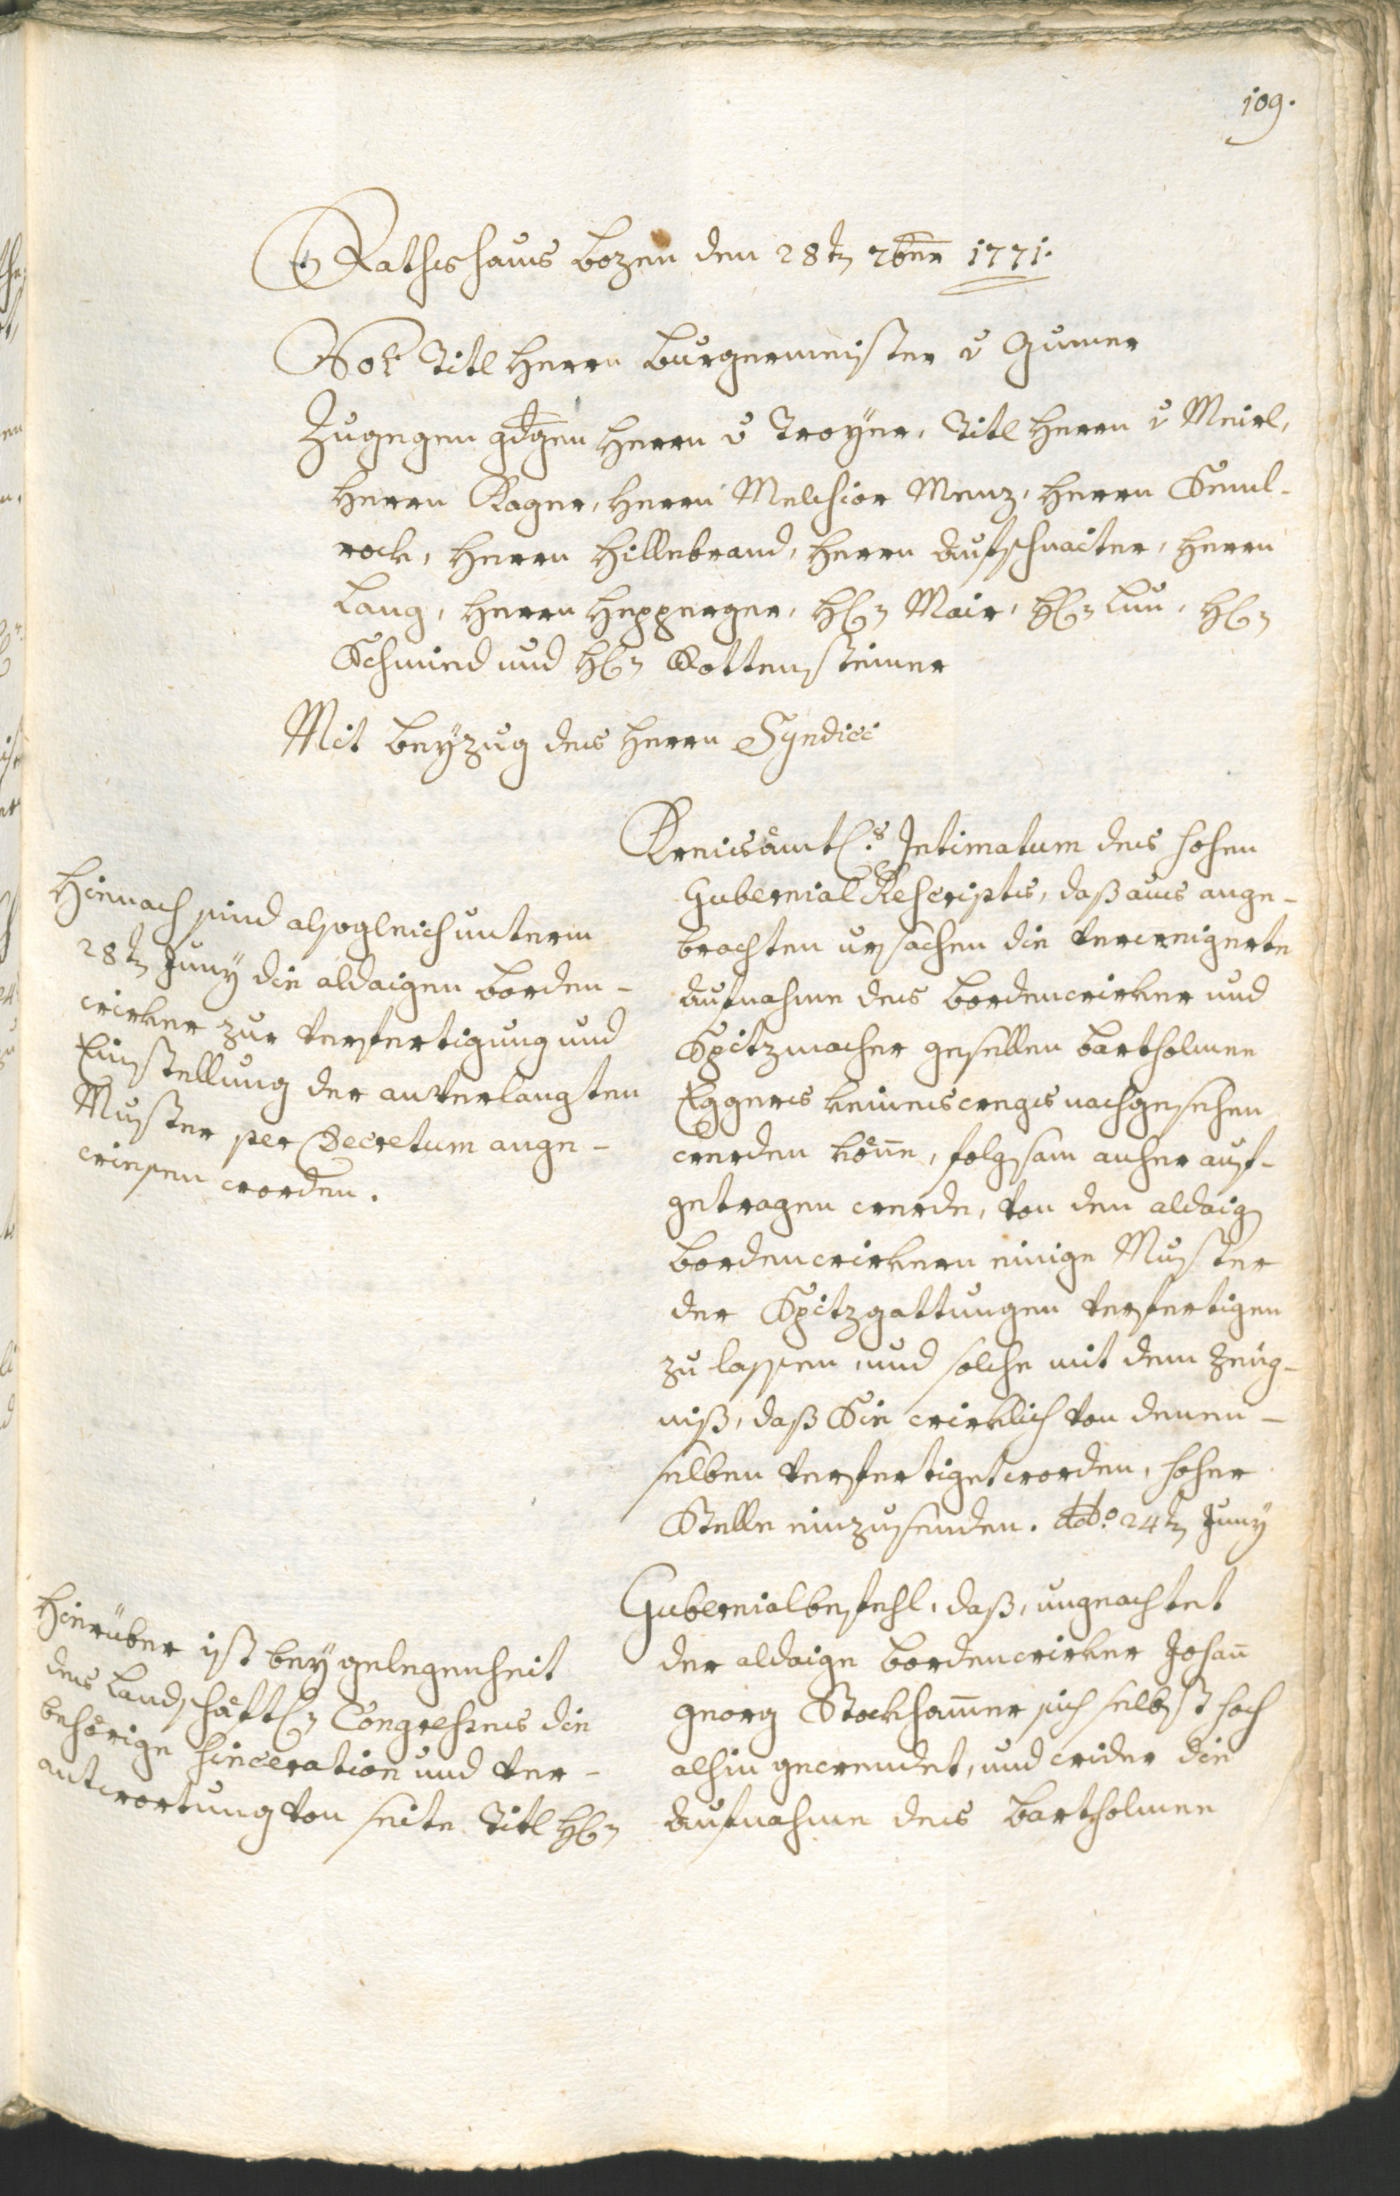 109.
Rathshaus Bozen den 28t 7ber 1771.
Vor Titl Herrn Burgermeister v Gumer
Zugegen Herrn v Troyer, Titl Herrn v Meirl,
Herrn Rager, Herrn Melchior Menz, Herrn Seml-
rock, Herrn Hillebrand, Herrn Aufschnaiter, Herrn
Lang, Herrn Hepperger, H Mair, H Lun, H
Schmied und H Kottensteiner
Mit beyzug des Herrn Syndici
Kreisämtl.s Intimatum des hohen
Gubernial Rescripts, daß aus ange-
brachten ursachen die verweigerte
Aufnahme des bordenwirker und
Spitzmacher gesellen Bartholmee
Eggers keineswegs nachgesehen
werden könne, folgsam anher auf-
getragen werde, von den aldaig
bordenwirkern einige Muster
der Spitzgattungen verfertigen
zu lassen, und solche mit dem Zeug-
niß, daß Sie wirklich von denen-
selben verfertiget worden, hoher
Stelle einzusenden. ddo 24t Juny
Hienach sind alsogleich unterm
28t Juny die aldaigen borden-
wirker zur verfertigung und
Einstellung der anverlangten
Muster per Decretum ange-
wiesen worden.
Gubernialbefehl, daß, ungeachtet
der aldaige bordenwirker Johan̄
Georg Stockham̄er sich selbst hoch
alhin gewendet, und wider die
Aufnahme des Bartholmee
Hierüber ist bey gelegenheit
des Landschäftl Congresses die
behörige sinceration und ver-
antwortung von seite Titl H